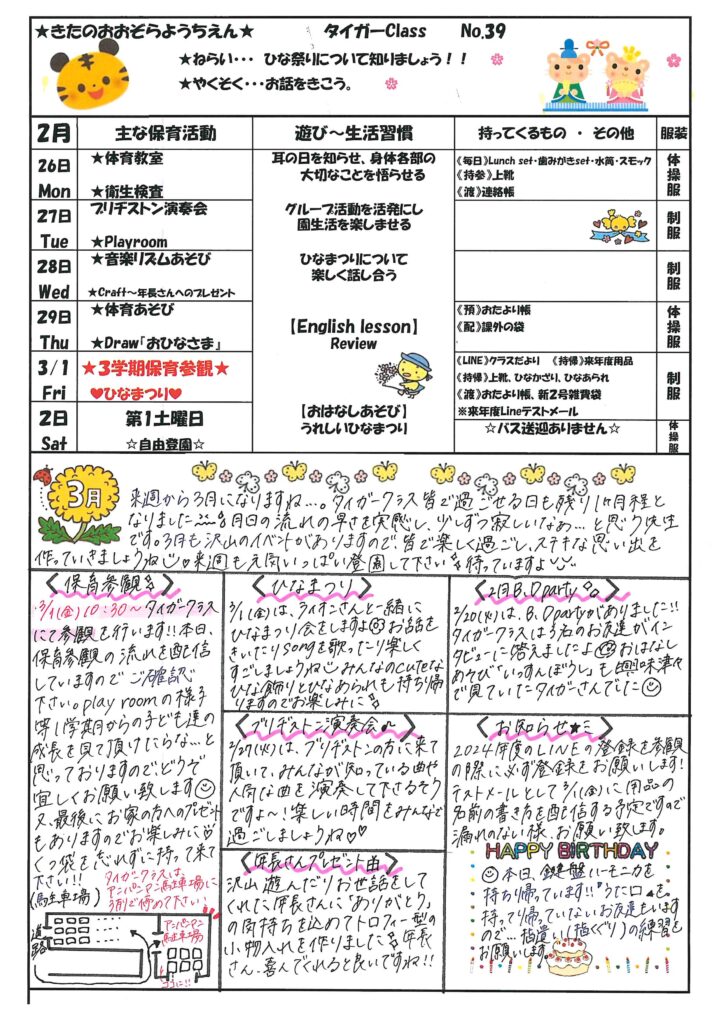 ★きたのおおぞらようちえん★ タイガーClass No.39
★ねらい・・・ ひな祭りについて知りましょう！！
★やくそく・・・お話をきこう。
2月 主な保育活動 遊び～生活習慣 持ってくるもの ・ その他 服装
26日 Mon
★体育教室
★衛生検査
耳の日を知らせ、身体各部の
大切なことを悟らせる
《毎日》Lunch set・歯みがきset・水筒・スモック
《持参》上靴
《渡》連絡帳
体操服
27日 Tue
ブリヂストン演奏会
★Playroom
グループ活動を活発にし
園生活を楽しませる
制服
28日 Wed
★音楽リズムあそび
★Craft～年長さんへのプレゼント
ひなまつりについて
楽しく話し合う
制服
29日 Thu
★体育あそび
★Draw「おひなさま」
【English lesson】
Review
《預》おたより帳
《配》課外の袋
体操服
3/1 Fri
★3学期保育参観★
♥ひなまつり♥
《LINE》クラスだより 《持帰》来年度用品
《持帰》上靴、ひなかざり、ひなあられ
《渡》おたより帳、新2号雑費袋
※来年度Lineテストメール
制服
2日 Sat
第1土曜日
☆自由登園☆
【おはなしあそび】
うれしいひなまつり
☆バス送迎ありません☆
体操服
3月
来週から3月になりますね…。タイガークラス皆で過ごせる日も残り1ヶ月程と
なりました 月日の流れの早さを実感し、少しずつ寂しいなぁ…と思う先生
です。3月も沢山のイベントがありますので、皆で楽しく過ごし、ステキな思い出を
作っていきましょうね 来週も元気いっぱい登園して下さい 待っていますよ
保育参観
3/1(金)10:30～タイガークラス
にて参観を行います!!本日、
保育参観の流れを配信
していますのでご確認
下さい。play roomの様子
等1学期からの子ども達の
成長を見て頂けたらな…と
思っておりますので、どうぞ
宜しくお願い致します
又、最後にお家の方へのプレゼント
もありますのでお楽しみに
くつ袋を忘れずに持って来て
下さい!!
タイガークラスは、
アンパンマン駐車場に
3列で停めて下さい
(駐車場)
道路
アンパンマン
駐車場
ココに!!
ひなまつり
3/1(金)は、ライオンさんと一緒に
ひなまつり会をしますよ お話を
きいたりsongを歌ったり楽しく
すごしましょうね みんなのcuteな
ひな飾りとひなあられも持ち帰
りますのでお楽しみに
ブリヂストン演奏会
2/27(火)は、ブリヂストンの方に来て
頂いて、みんなが知っている曲や
人気な曲を演奏して下さるそう
ですよ～!楽しい時間をみんなで
過ごしましょうね♡♡
年長さんプレゼント
沢山遊んだりお世話をして
くれた年長さんに「ありがとう」
の気持ちを込めてトロフィー型の
小物入れを作りました 年長
さん、喜んでくれると良いですね!!
2月B.D party
2/20(火)は、B.D partyがありました!!
タイガークラスは3名のお友達がイン
タビューに答えましたよ おはなし
あそび「いっすんぼうし」も興味津々
で見ていたタイガーさんでした
お知らせ
2024年度のLINEの登録を参観
の際に必ず登録をお願いします!
テストメールとして3/1(金)に用品の
名前の書き方を配信する予定ですので
漏れのない様、お願い致します。
HAPPY BIRTHDAY
本日、鍵盤ハーモニカを
持ち帰っています!!うた口を
持って帰っていないお友達もいます
ので…指遣い(指くぐり)の練習を
お願いします。